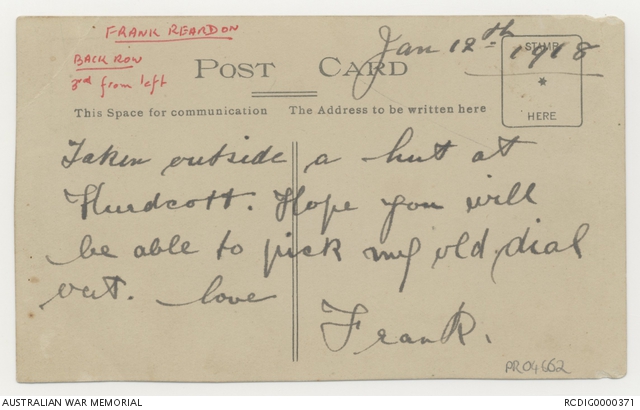 FRANK REARDON
BACK ROW
3rd from left
Jan 12th 1918
POST CARD
STAMP
*
HERE
This Space for communication The Address to be written here
Taken outside a hut at
Hurdcott. Hope you will
be able to pick my old dial
out. love
Frank.
PR04662
AUSTRALIAN WAR MEMORIAL
RCDIG0000371